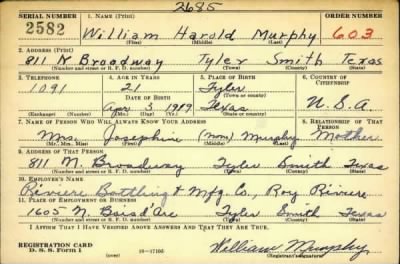 2685
SERIAL NUMBER 1. Name (Print) ORDER NUMBER
2582 William Harold Murphy 603
(First) (Middle) (Last)
2. Address (Print)
811 N Broadway Tyler Smith Texas
(Number and street or R. F. D. number) (Town) (County) (State)
3. Telephone 4. Age in Years 5. Place of Birth 6. Country of Citizenship
1091 21 Tyler
Date of Birth (Town or county)
Apr 3 1919 Texas U.S.A.
(Exchange) (Number) (Mo.) (Day) (Yr.) (State or country)
7. Name of Person Who Will Always Know Your Address 8. Relationship of That Person
Mrs. Josephine (Mom) Murphy Mother
(Mr., Mrs., Miss) (First) (Middle) (Last)
9. Address of That Person
811 N. Broadway Tyler Smith Texas
(Number and street or R. F. D. number) (Town) (County) (State)
10. Employer's Name
Riviere Bottling & Mfg. Co., Roy Riviere
11. Place of Employment or Business
1605 N Bois d'Arc Tyler Smith Texas
(Number and street or R. F. D. number) (Town) (County) (State)
I Affirm That I Have Verified Above Answers and That They Are True.
REGISTRATION CARD
D. S. S. Form 1 (over) William Murphy
(Registrant's signature)